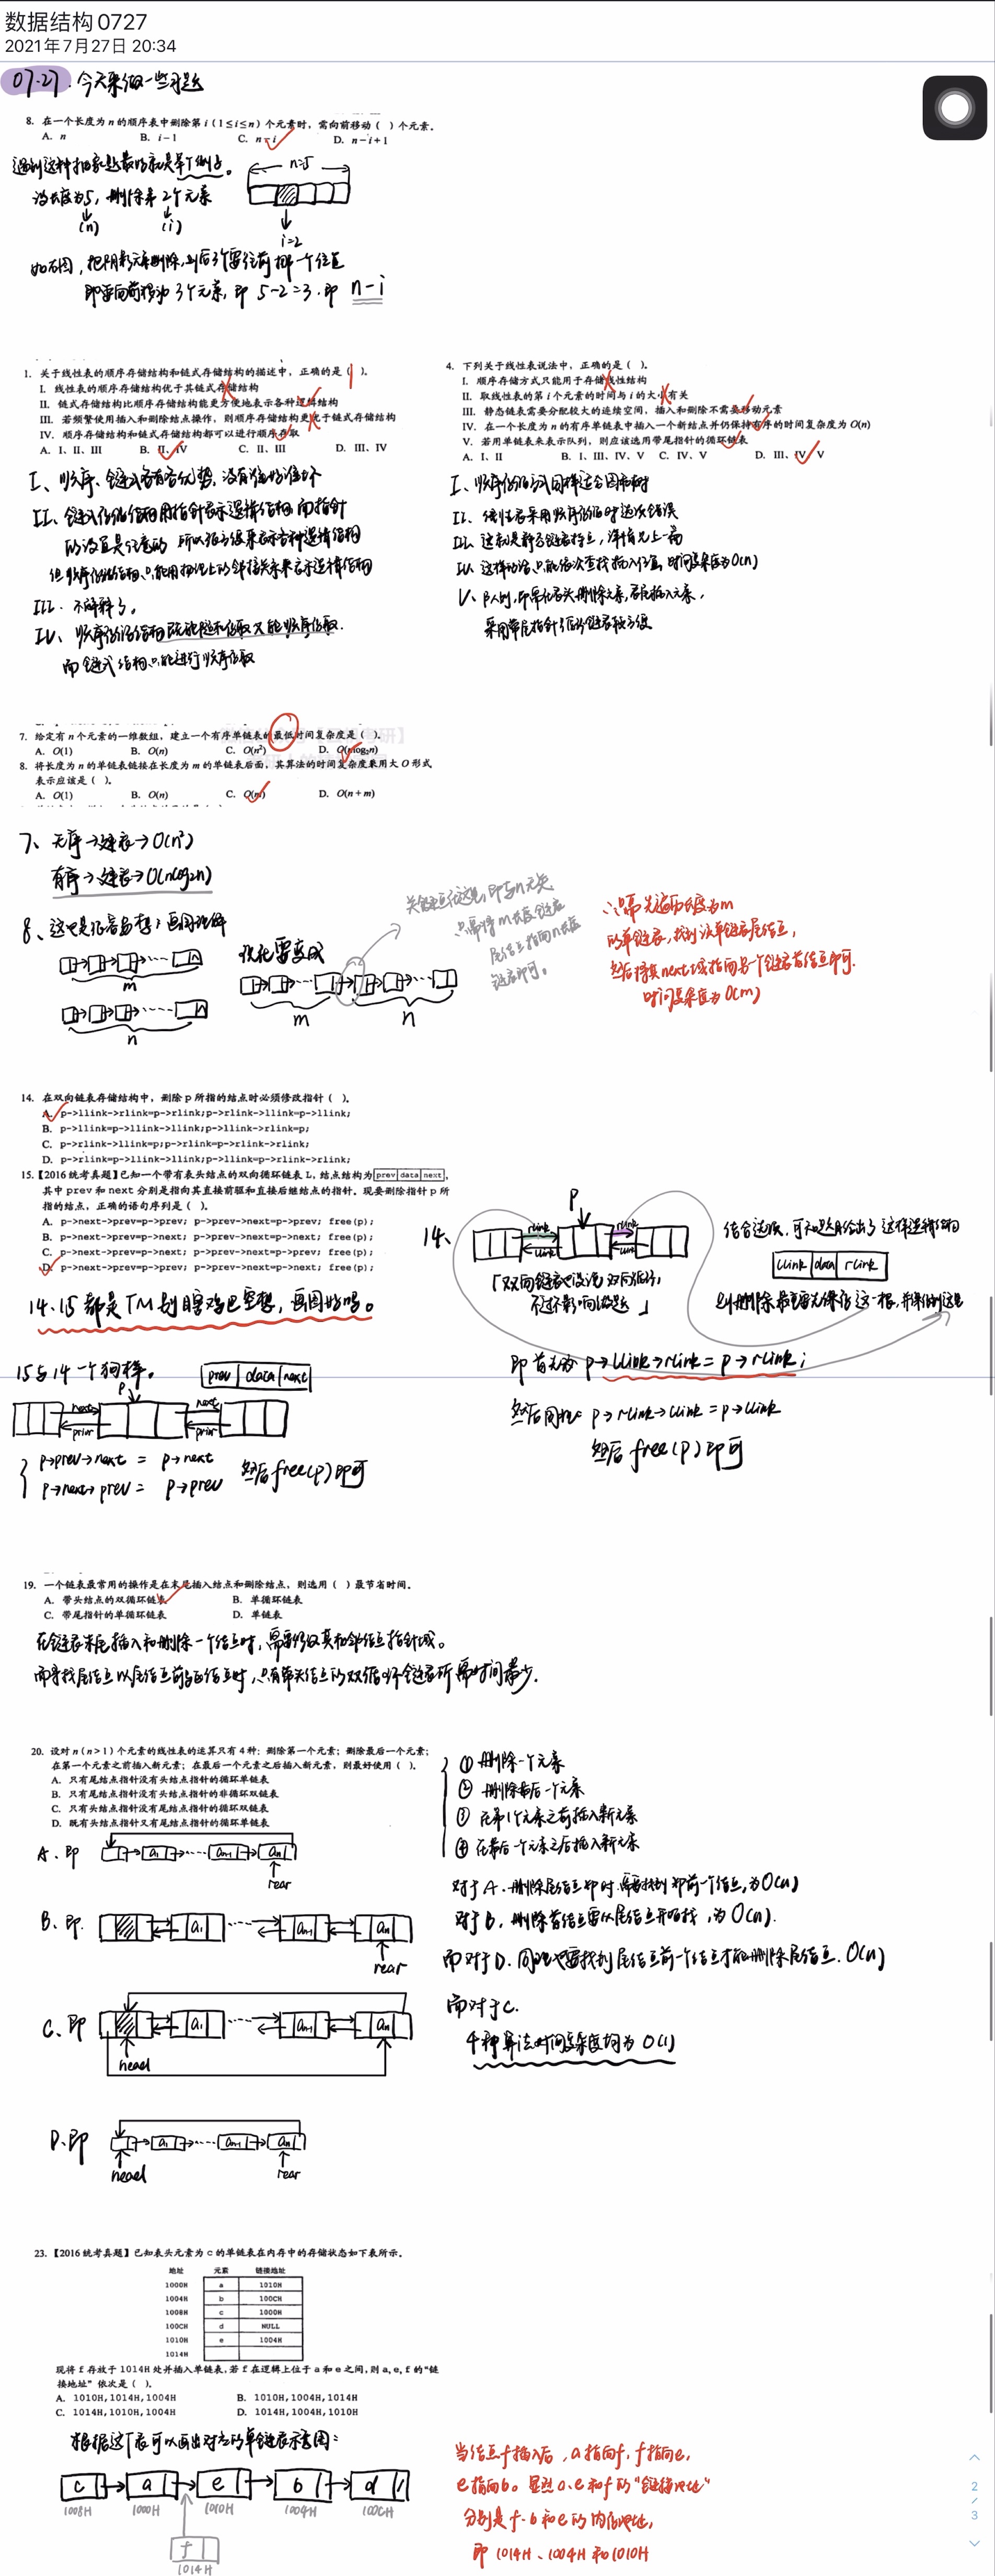 数据结构0727
2021年7月27日 20:34
07.27. 今天来做一些习题
8. 在一个长度为 n 的顺序表中删除第 i (1≤i≤n) 个元素时, 需向前移动 ( ) 个元素。
A. n B. i-1 C. n-i D. n-i+1
遇到这种抽象题最好就是举个例子。
n=5
设长度为5, 删除第2个元素
(n) (i)
i=2
如右图, 把阴影元素删除, 则后3个要往前挪一个位置
即要向前移动 3个元素, 即 5-2=3. 即 n-i
1. 关于线性表的顺序存储结构和链式存储结构的描述中, 正确的是 ( )。
I. 线性表的顺序存储结构优于其链式存储结构
II. 链式存储结构比顺序存储结构能更方便地表示各种逻辑结构
III. 若频繁使用插入和删除结点操作, 则顺序存储结构更优于链式存储结构
IV. 顺序存储结构和链式存储结构都可以进行顺序存取
A. I、II、III B. II、IV C. II、III D. III、IV
I、顺序、链式各有各优势, 没有谁好谁坏
II、链式存储结构用指针表示逻辑结构, 而指针
的设置是任意的 所以很方便来表示各种逻辑结构
但顺序存储结构只能用物理上的邻接关系来表示逻辑结构
III. 不解释了。
IV、顺序存储结构既能随机存取又能顺序存取.
而链式结构只能进行顺序存取
4. 下列关于线性表说法中, 正确的是 ( )。
I. 顺序存储方式只能用于存储线性结构
II. 取线性表的第 i 个元素的时间与 i 的大小有关
III. 静态链表需要分配较大的连续空间, 插入和删除不需要移动元素
IV. 在一个长度为 n 的有序单链表中插入一个新结点并仍保持有序的时间复杂度为 O(n)
V. 若用单链表来表示队列, 则应该选用带尾指针的循环链表
A. I、II B. I、III、IV、V C. IV、V D. III、IV、V
I、顺序存储方式同样适合图和树
II、线性表采用顺序存储时这次错误
III、这就是静态链表特点, 详情见上一篇
IV、这样的话, 只能依次查找插入位置, 时间复杂度为O(n)
V、队列, 即常在表头删除元素, 表尾插入元素,
采用带尾指针循环链表较方便
7. 给定有 n 个元素的一维数组, 建立一个有序单链表的最低时间复杂度是 ( )。
A. O(1) B. O(n) C. O(n²) D. O(nlog₂n)
8. 将长度为 n 的单链表链接在长度为 m 的单链表后面, 其算法的时间复杂度采用大 O 形式
表示应该是 ( )。
A. O(1) B. O(n) C. O(m) D. O(n + m)
7、无序→建表→O(n²)
有序→建表→O(nlog₂n)
8、这也是很容易想, 画图理解
m
n
现在需变成
m n
关键点在这里, 即与n无关
只需将m长度链表
尾结点指向n长度
链表即可。
∴只需先遍历长度为m
的单链表, 找到该单链表尾结点,
然后将其next域指向另一个链表首结点即可.
时间复杂度为 O(m)
14. 在双向链表存储结构中, 删除 p 所指的结点时必须修改指针 ( )。
A. p->llink->rlink=p->rlink;p->rlink->llink=p->llink;
B. p->llink=p->llink->llink;p->llink->rlink=p;
C. p->rlink->llink=p;p->rlink=p->rlink->rlink;
D. p->rlink=p->llink->llink;p->llink=p->rlink->rlink;
15.【2016 统考真题】已知一个带有表头结点的双向循环链表 L, 结点结构为 prev data next,
其中 prev 和 next 分别是指向其直接前驱和直接后继结点的指针。现要删除指针 p 所
指的结点, 正确的语句序列是 ( )。
A. p->next->prev=p->prev; p->prev->next=p->prev; free(p);
B. p->next->prev=p->next; p->prev->next=p->next; free(p);
C. p->next->prev=p->next; p->prev->next=p->prev; free(p);
D. p->next->prev=p->prev; p->prev->next=p->next; free(p);
14.15 都是TM别瞎鸡巴空想, 画图好吗。
14、
P
rlink rlink
llink llink
「双向链表也没说双向循环,
不过不影响做题」
结合选项, 可知题目给出了这样逻辑结构
llink data rlink
即首先为 p→llink→rlink = p→rlink;
然后同理 p→rlink→llink = p→llink
然后 free(p) 即可
15与14一个狗样。
prev data next
P
next next
prior prior
p→prev→next = p→next
p→next→prev = p→prev
然后free(p)即可
19. 一个链表最常用的操作是在末尾插入结点和删除结点, 则选用 ( ) 最节省时间。
A. 带头结点的双循环链表 B. 单循环链表
C. 带尾指针的单循环链表 D. 单链表
在链表末尾插入和删除一个结点时, 需要修改其相邻结点指针域。
而寻找尾结点以尾结点前驱结点时, 只有带头结点的双循环链表所需时间最少.
20. 设对 n (n>1) 个元素的线性表的运算只有 4 种: 删除第一个元素; 删除最后一个元素;
在第一个元素之前插入新元素; 在最后一个元素之后插入新元素, 则最好使用 ( )。
A. 只有尾结点指针没有头结点指针的循环单链表
B. 只有尾结点指针没有头结点指针的非循环双链表
C. 只有头结点指针没有尾结点指针的循环双链表
D. 既有头结点指针又有尾结点指针的循环单链表
① 删除一个元素
② 删除最后一个元素
③ 在第1个元素之前插入新元素
④ 在最后一个元素之后插入新元素
A. 即 a₁ aₙ₋₁ aₙ
rear
B. 即. a₁ aₙ₋₁ aₙ
rear
C. 即 a₁ aₙ₋₁ aₙ
head
D. 即 a₁ aₙ₋₁ aₙ
head rear
对于A. 删除尾结点时, 需要找到前一个结点, 为O(n)
对于B, 删除首结点要从尾结点开始找, 为O(n).
而对于D. 同理也要找到尾结点前一个结点才能删除尾结点. O(n)
而对于C.
4种算法时间复杂度均为 O(1)
23.【2016 统考真题】已知表头元素为 c 的单链表在内存中的存储状态如下表所示。
地址 元素 链接地址
1000H a 1010H
1004H b 100CH
1008H c 1000H
100CH d NULL
1010H e 1004H
1014H
现将 f 存放于 1014H 处并插入单链表, 若 f 在逻辑上位于 a 和 e 之间, 则 a, e, f 的“链
接地址”依次是 ( )。
A. 1010H, 1014H, 1004H B. 1010H, 1004H, 1014H
C. 1014H, 1010H, 1004H D. 1014H, 1004H, 1010H
根据这个表可以画出对应的单链表示意图:
c a e b d
1008H 1000H 1010H 1004H 100CH
f
1014H
当结点f插入后, a指向f, f指向e,
e指向b。显然a.e和f的“链接地址”
分别是f.b和e的内存地址,
即 1014H、1004H 和1010H
2
/
3